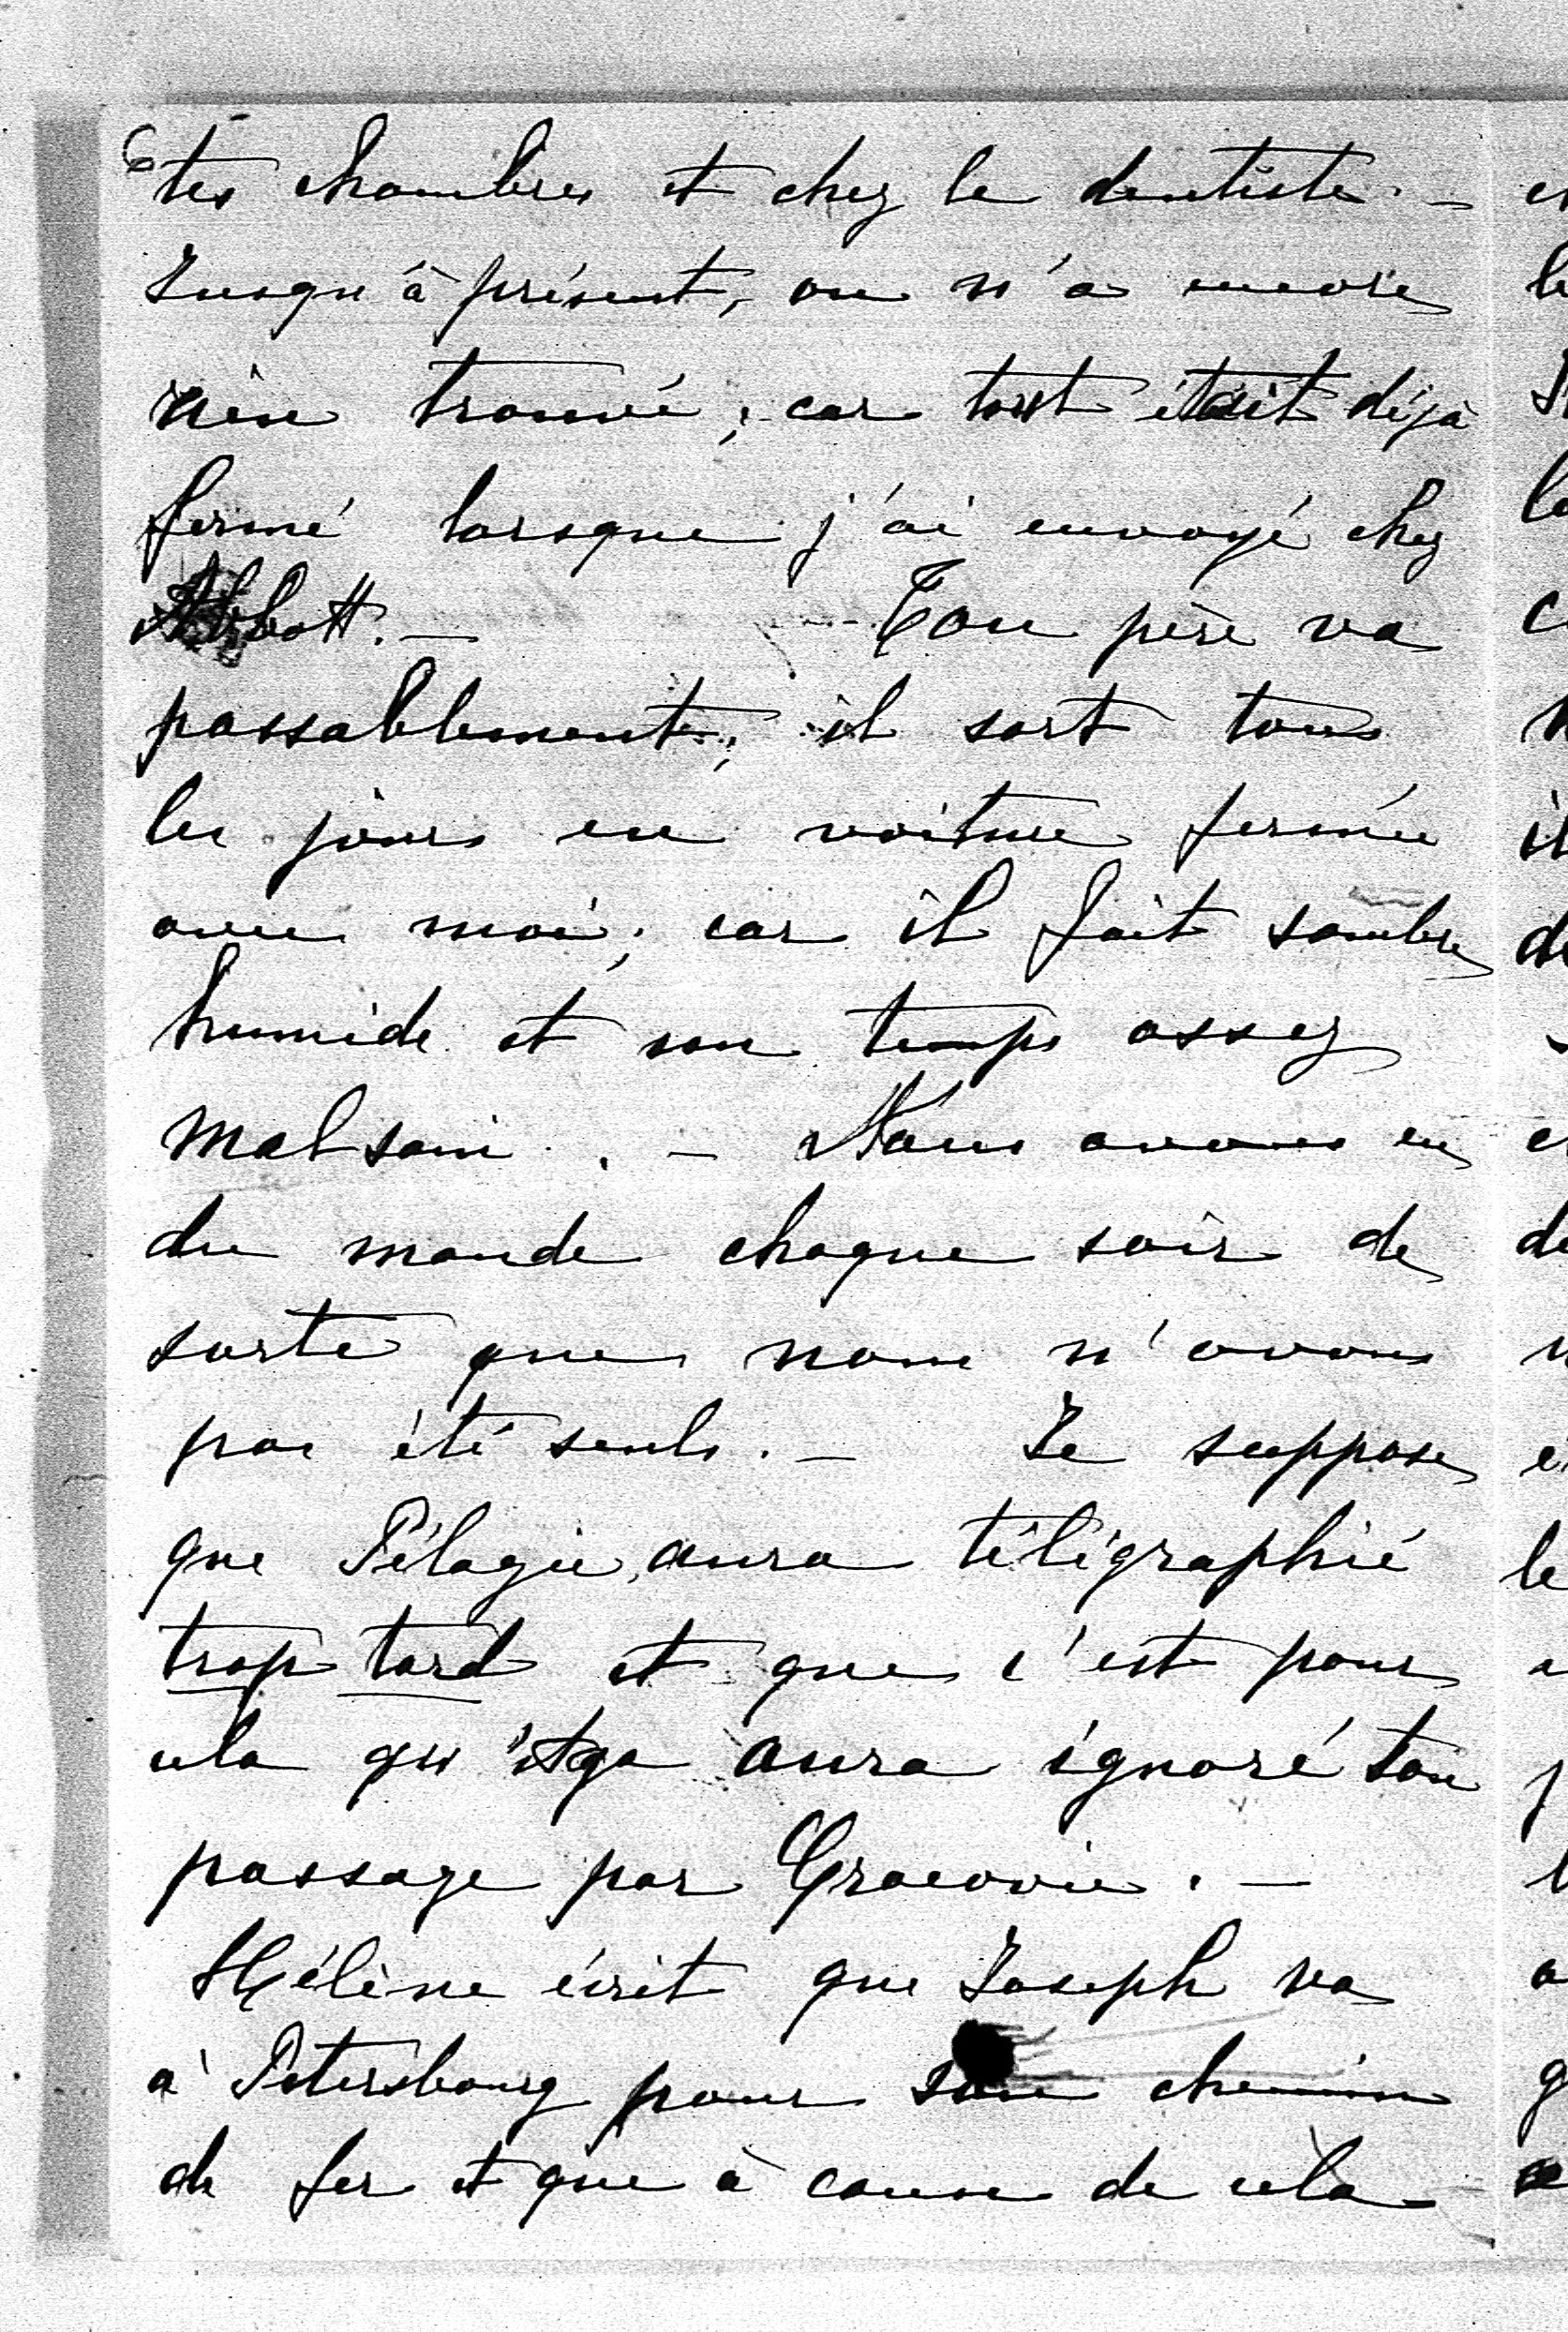 6
tes chambres et chez le dentiste. –
Jusqu'à présent, on n'a encore
rien trouvé; car tout était déjà
fermé lorsque j'ai envoyé chez
Abbott. – Ton père va
passablement; il sort tous
les jours en voiture fermée
avec moi; car il fait sombre
humide et un temps assez
malsain. – Nous avons eu
du monde chaque soir de
sorte que nous n'avons
pas été seuls. – Je suppose
que Pélagie aura télégraphié
trop tard et que c'est pour
cela qu' aura ignoré ton
passage par Cracovie. –
Hélène écrit que Joseph va
à Petersbourg pour son chemin
de fer et que à cause de cela